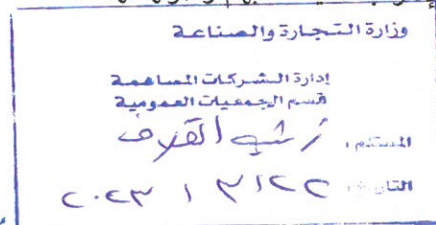 وزارة التجارة والصناعة
إدارة الشركات المساهمة
قسم الجمعيات العمومية
المستلم:
التاريخ: ٢٢ / ٣ / ٢٠٢٣